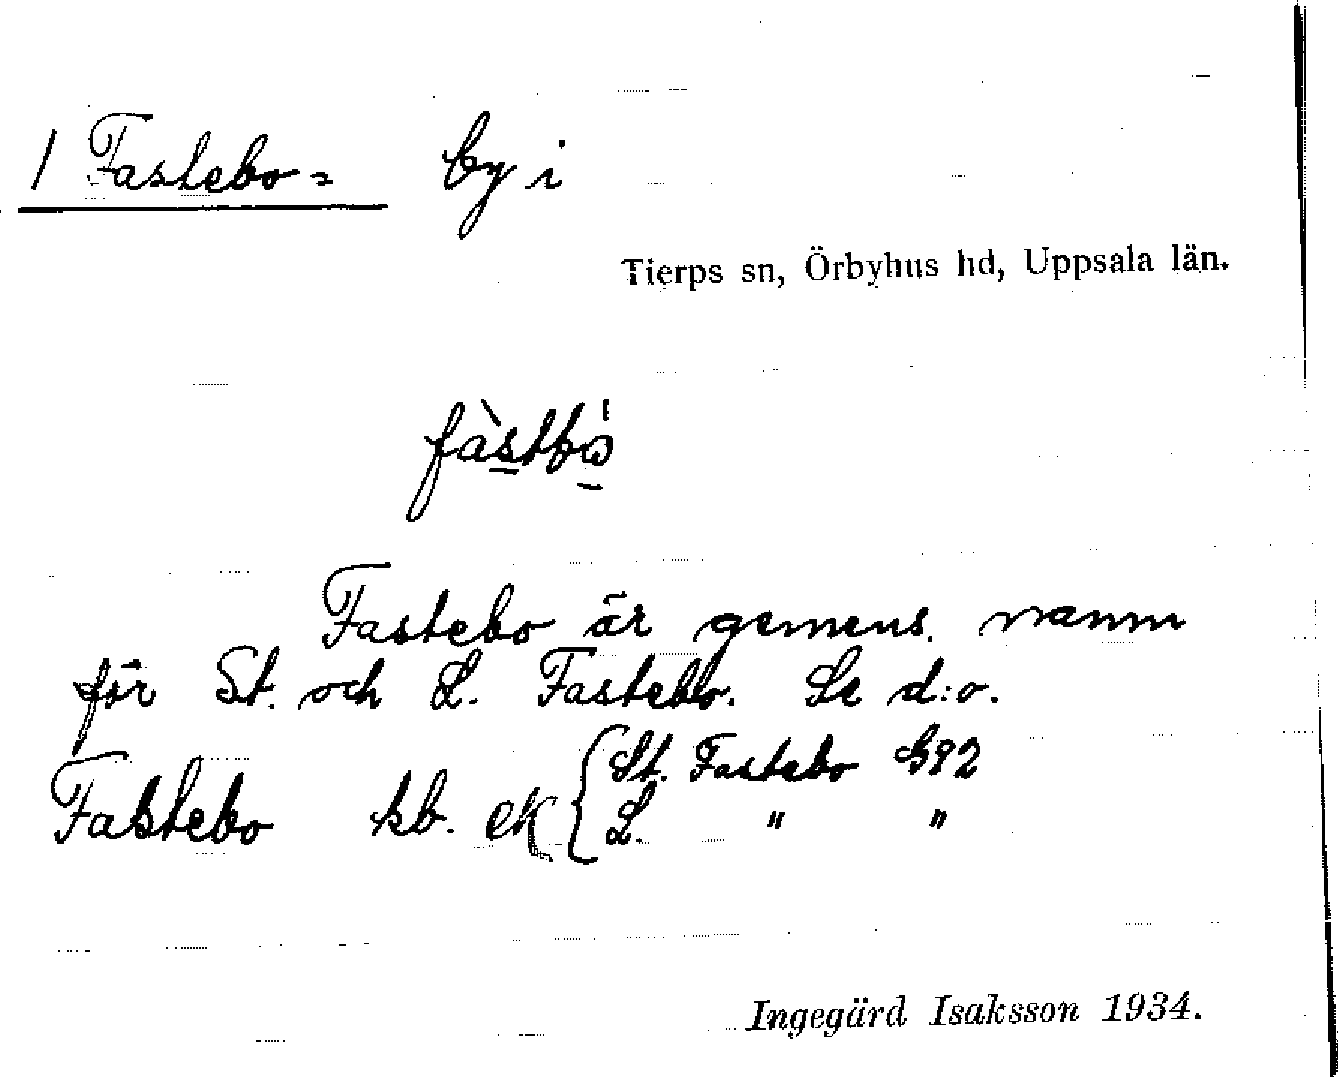 1 Fastebo = by i
Tierps sn, Örbyhus hd, Uppsala län.
Fastebo är gemens. namn
för St. och L. Fastebo. Se d:o.
Fastebo kb. ek { St. Fastebo G92
L. " "
Ingegärd Isaksson 1934.